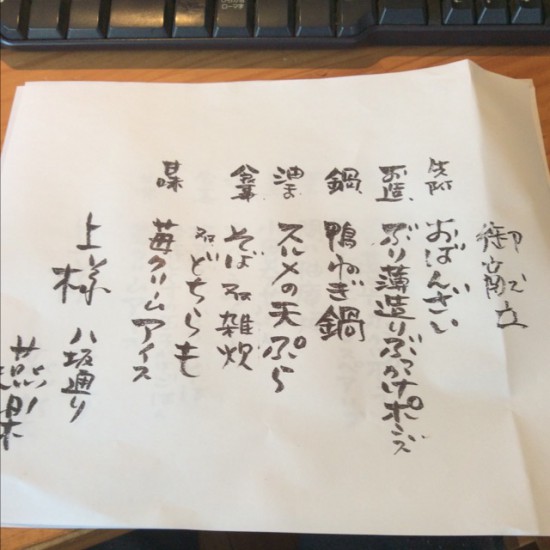 御献立
先附 おばんざい
お造 ぶり薄造りぶっかけポンズ
鍋 鴨ねぎ鍋
油もの スルメの天ぷら
食事 そば又は雑炊
又はどちらも
甘味 苺クリームアイス
上様
八坂通り
燕楽